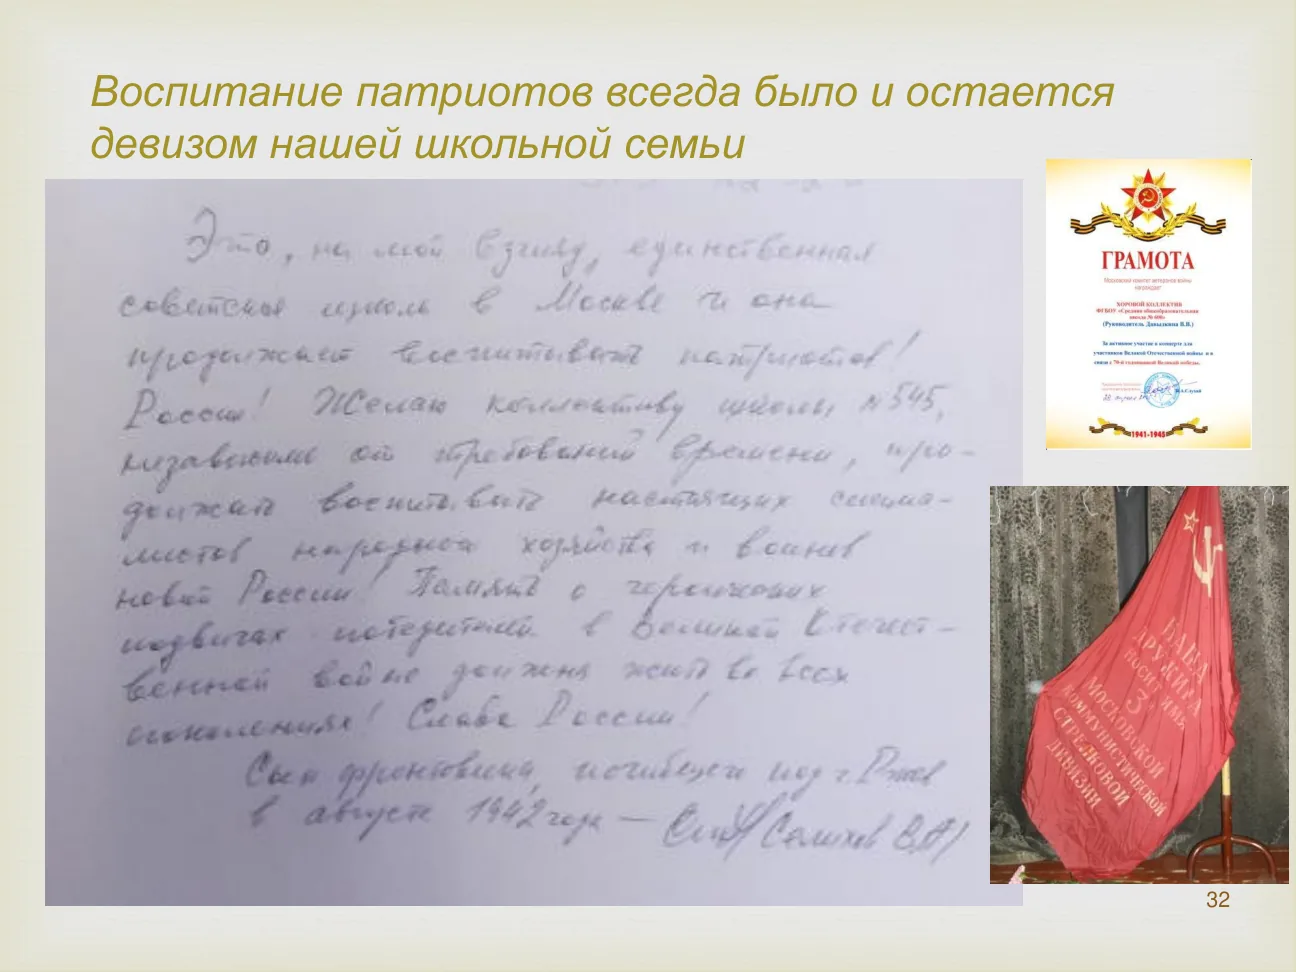 Воспитание патриотов всегда было и остается
девизом нашей школьной семьи
Это, на мой взгляд, единственная
советская школа в Москве и она
продолжает воспитывать патриотов!
России! Желаю коллективу школы №545,
независимо от требований времени, про-
должать воспитывать настоящих специа-
листов народного хозяйства и воинов
новой России! Память о героических
подвигах победителей в Великой Отечест-
венной войне должна жить во всех
поколениях! Слава России!
Сын фронтовика, погибшего под г. Ржев
в августе 1942 года —
ГРАМОТА
Московский комитет ветеранов войны
награждает
ХОРОВОЙ КОЛЛЕКТИВ
ФГБОУ «Средняя общеобразовательная
школа № 606»
(Руководитель Давыдкина В.В.)
За активное участие в концерте для
участников Великой Отечественной войны и в
связи с 70-й годовщиной Великой победы.
1941-1945
НАША
ДРУЖИНА
НОСИТ ИМЯ
3
МОСКОВСКОЙ
КОММУНИСТИЧЕСКОЙ
СТРЕЛКОВОЙ
ДИВИЗИИ
32